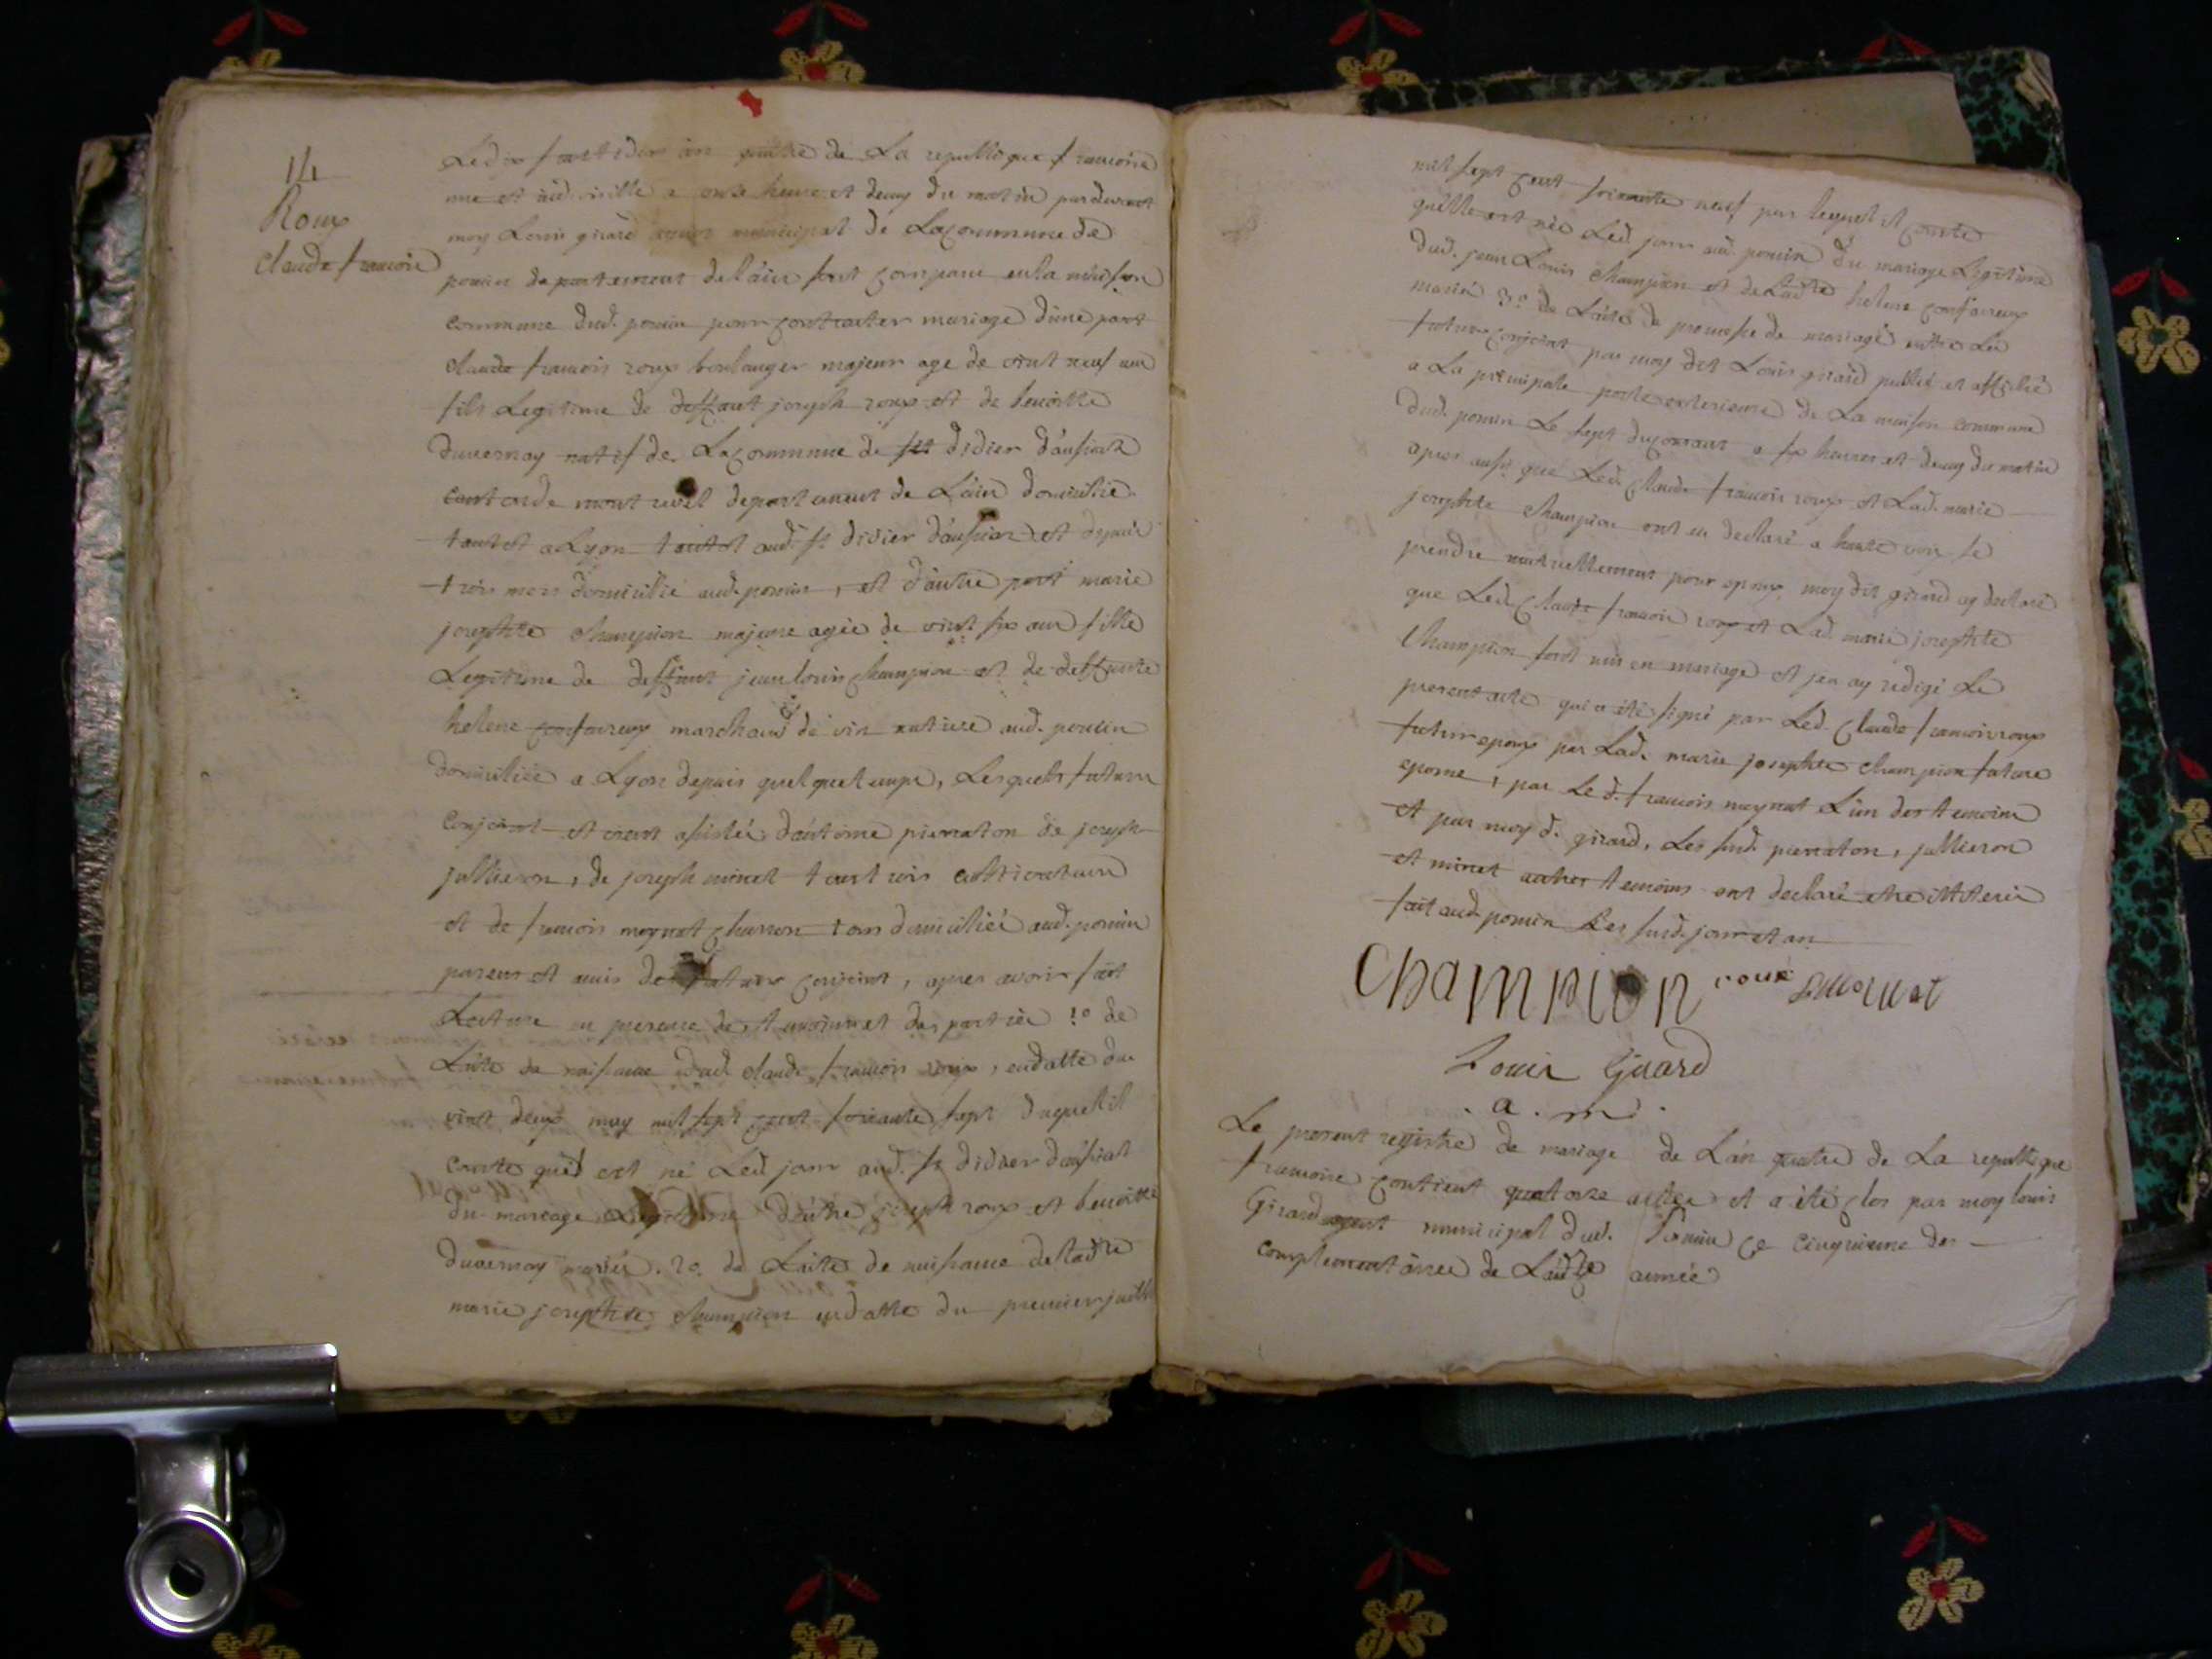 14
Roux
Claude francois
Le dix fructidor an quatre de La republique francoise
une et indivisible a onze heure et demy du matin pardevant
moy Louis girard agent municipal de La commune de
poncin departement de l'ain sont comparu en la maison
commune dud. poncin pour contracter mariage d'une part
claude francois roux boulanger majeur age de vint neuf ans
fils Legitime de deffunt joseph roux et de benoitte
duvernay natif de La commune de st didier d'aussiat
canton de mont revel departement de L'ain domicilié
tantot a Lyon tantot aud. st didier d'aussiat et depuis
trois mois domicilié aud. poncin, et d'autre part marie
josephte Champion majeure agée de vint six ans fille
Legitime de deffunt jean louis champion et de deffunte
helene marchand de vin native aud. poncin
domiciliée a Lyon depuis quelque temps, Lesquels futurs
conjoint etoient assistés d'antoine pierraton de joseph
jullieron, de joseph minet tout trois cultivateurs
et de francois moynat charron tous domiciliés aud. poncin
parens et amis des futurs conjoint, apres avoir fait
Lecture en presence des temoins et des parties 1o de
L'acte de naissance dud. claude francois roux, en datte du
vint deux may mil sept cent soixante sept duquel il
conste quil est né Led. jour aud. st didier d'aussiat
du mariage Legitime d'entre joseph roux et benoitte
duvernay mariés. 2o. de L'acte de naissance de Ladte
marie josephte Champion en datte du premier juillet
mil sept cent soixante neuf par lequel il conste
quelle est née Led. jour aud. poncin du mariage Legitime
dud. jean Louis Champion et de Ladte helene
mariés 3o de L'acte de promesse de mariage entre Les
futurs conjoint par moy dit Louis girard publié et affiché
a La principale porte exterieure de La maison commune
dud. poncin Le sept du courant a six heures et demy du matin
apres aussi que Led. Claude francois roux et Lad. marie
josephte Champion ont eu declaré a haute voix se
prendre mutuellement pour epoux, moy dit girard ay declaré
que Led. Claude francois roux et Lad. marie josephte
Champion sont unis en mariage et j'en ay redigé Le
present acte qui a été signé par Led. Claude francois roux
futur epoux par Lad. marie josephte Champion future
epouse, par Le d. francois moynat L'un des temoins
et par moy d. girard, Les susd. pierraton, jullieron
et minet autres temoins ont declaré etre illiteré
fait aud. poncin Les susd. jour et an
Champion roux f moynat
Louis Girard
a. m.
Le present registre de mariage de L'an quatre de La republique
francoise contient quatorze actes et a été clos par moy louis
Girard agent municipal dud. Poncin ce cinquieme des
complementaires de Ladte année